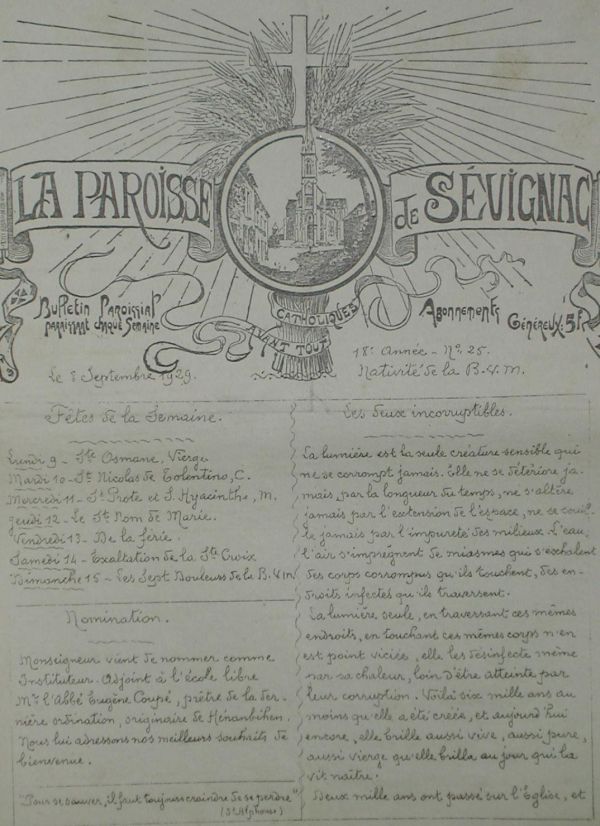 LA PAROISSE de SÉVIGNAC
Bulletin Paroissial
paraissant chaque Semaine
CATHOLIQUES
AVANT TOUT
Abonnements
Généreux: 5F
Le 8 Septembre 1929.
18e Année - No 25.
Nativité de la B.V.M.
Fêtes de la Semaine.
Lundi 9 - Ste Osmane, Vierge
Mardi 10 - St Nicolas de Tolentino, C.
Mercredi 11 - St Prote et S. Hyacinthe, M.
Jeudi 12 - Le St Nom de Marie.
Vendredi 13 - De la férie.
Samedi 14 - Exaltation de la Ste Croix
Dimanche 15 - Les Sept Douleurs de la B.V.M
Nomination.
Monseigneur vient de nommer comme
Instituteur-Adjoint à l'école libre
Mr l'Abbé Eugène Coupé, prêtre de la der-
nière ordination, originaire de Hénanbihen.
Nous lui adressons nos meilleurs souhaits de
bienvenue.
"Pour se sauver, il faut toujours craindre de se perdre"
(St Alphonse)
Les deux incorruptibles.
La lumière est la seule créature sensible qui
ne se corrompt jamais. Elle ne se détériore ja-
mais, par la longueur du temps, ne s'altère
jamais par l'extension de l'espace, ne se souil-
le jamais par l'impureté des milieux. L'eau,
l'air s'imprègnent de miasmes qui s'exhalent
des corps corrompus qu'ils touchent, des en-
droits infectés qu'ils traversent.
La lumière seule, en traversant ces mêmes
endroits, en touchant ces mêmes corps n'en
est point viciée, elle les désinfecte même
par sa chaleur, loin d'être atteinte par
leur corruption. Voilà six mille ans au
moins qu'elle a été créée, et aujourd'hui
encore, elle brille aussi vive, aussi pure,
aussi vierge qu'elle brilla au jour qui la
vit naître.
Deux mille ans ont passé sur l'Eglise, et